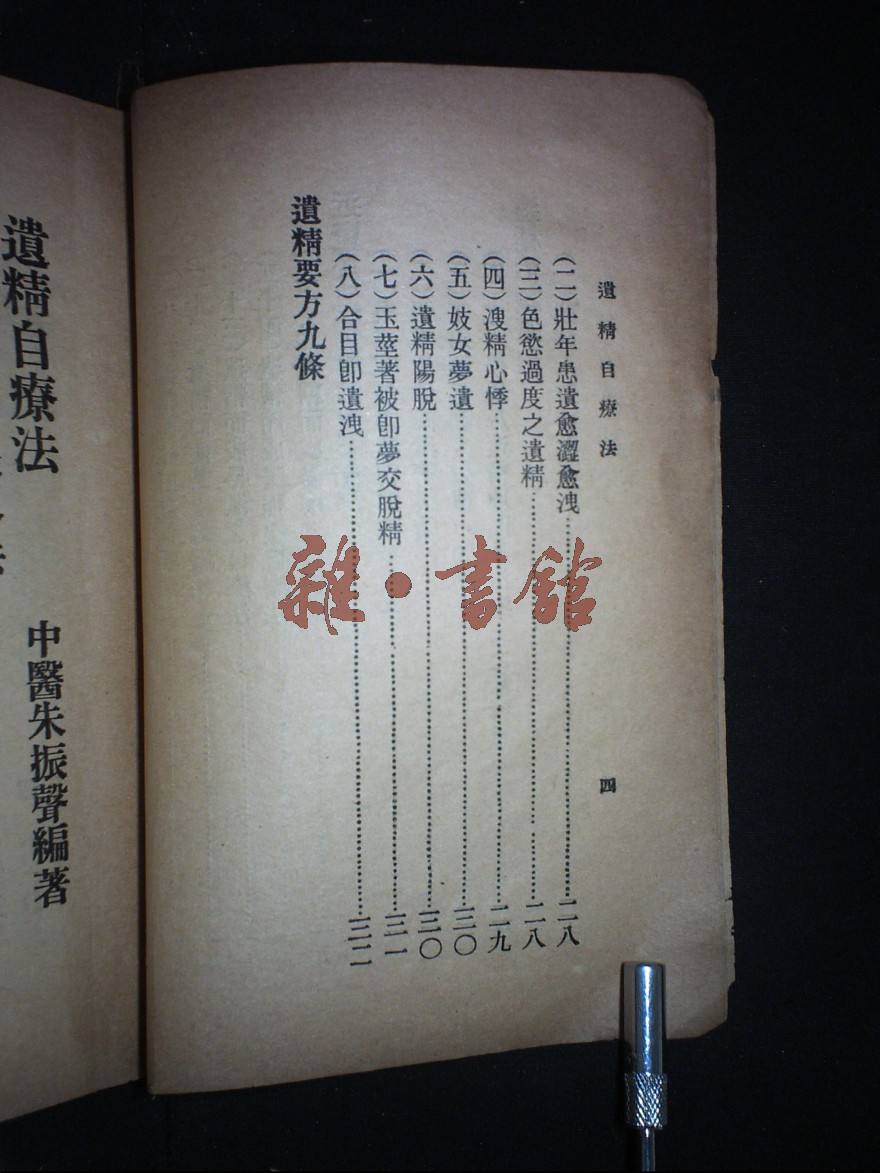 遺精自療法
四
(二)壯年患遺愈澀愈洩……二八
(三)色慾過度之遺精……二八
(四)溲精心悸……二九
(五)妓女夢遺……三〇
(六)遺精陽脫……三〇
(七)玉莖著被卽夢交脫精……三一
(八)合目卽遺洩……三二
遺精要方九條
中醫朱振聲編著
遺精自療法
雜·書館